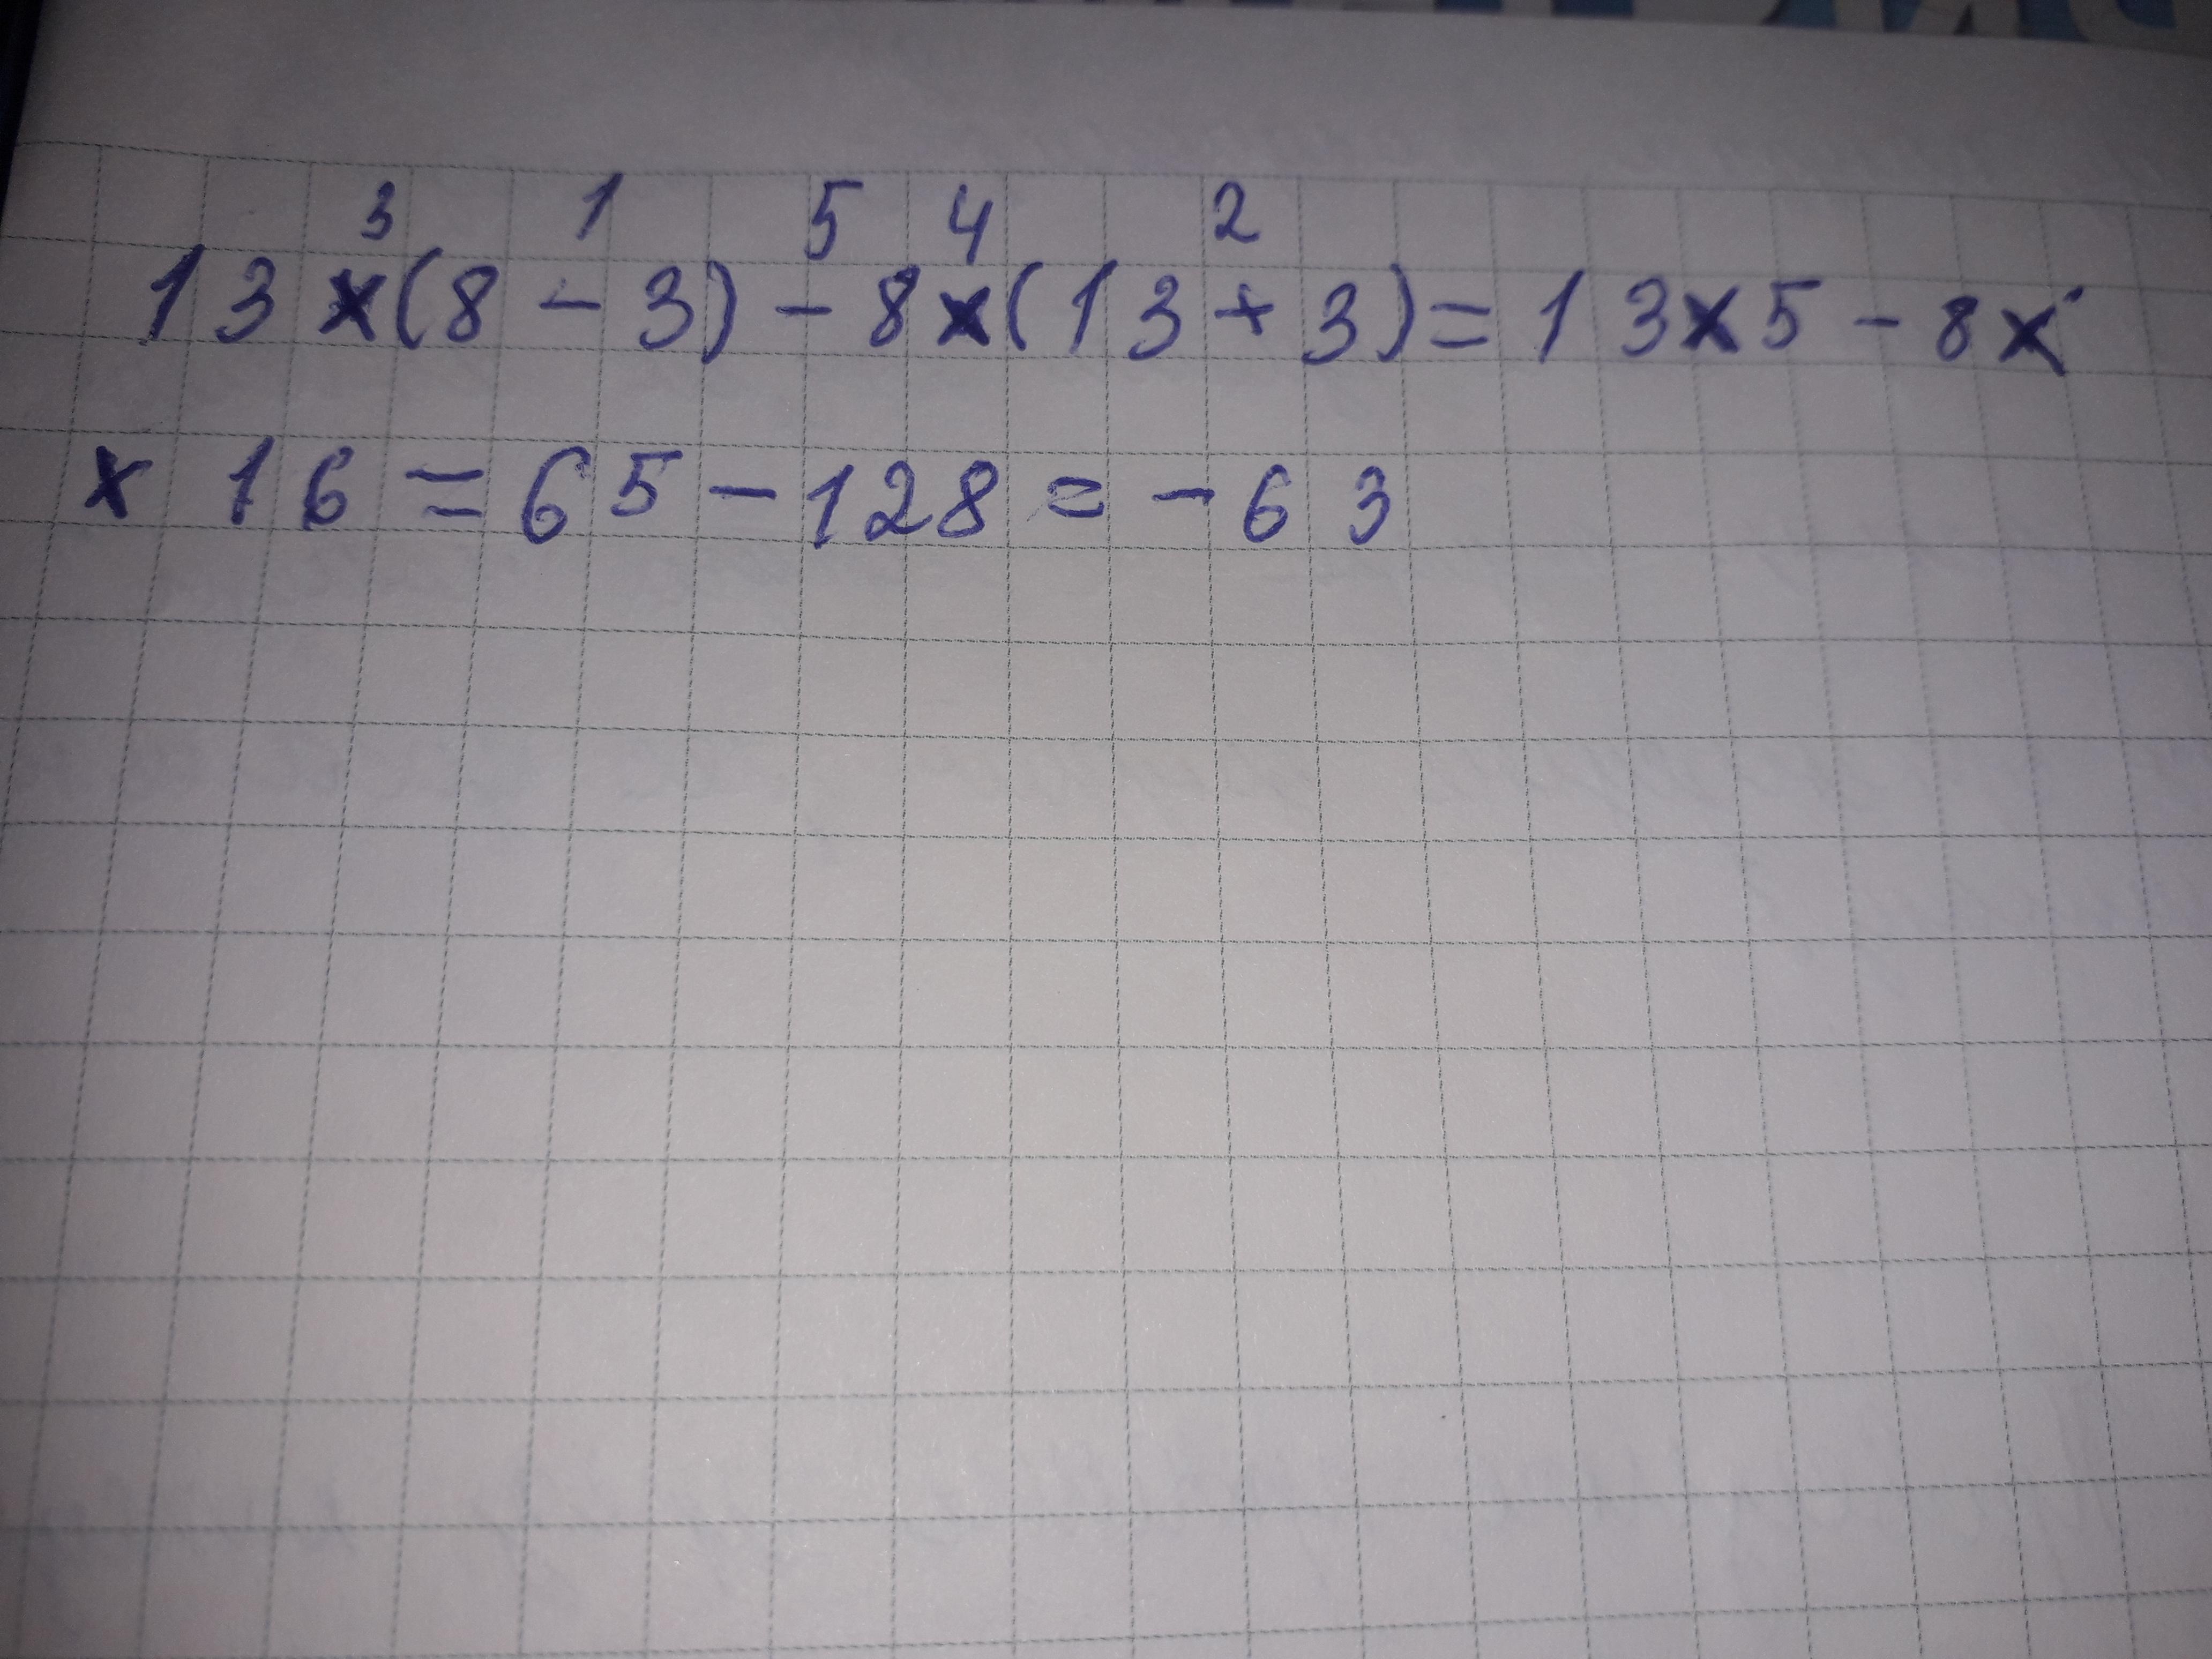 3 1 5 4 2
13 x (8 - 3) - 8 x (13 + 3) = 13 x 5 - 8 x
x 16 = 65 - 128 = - 63